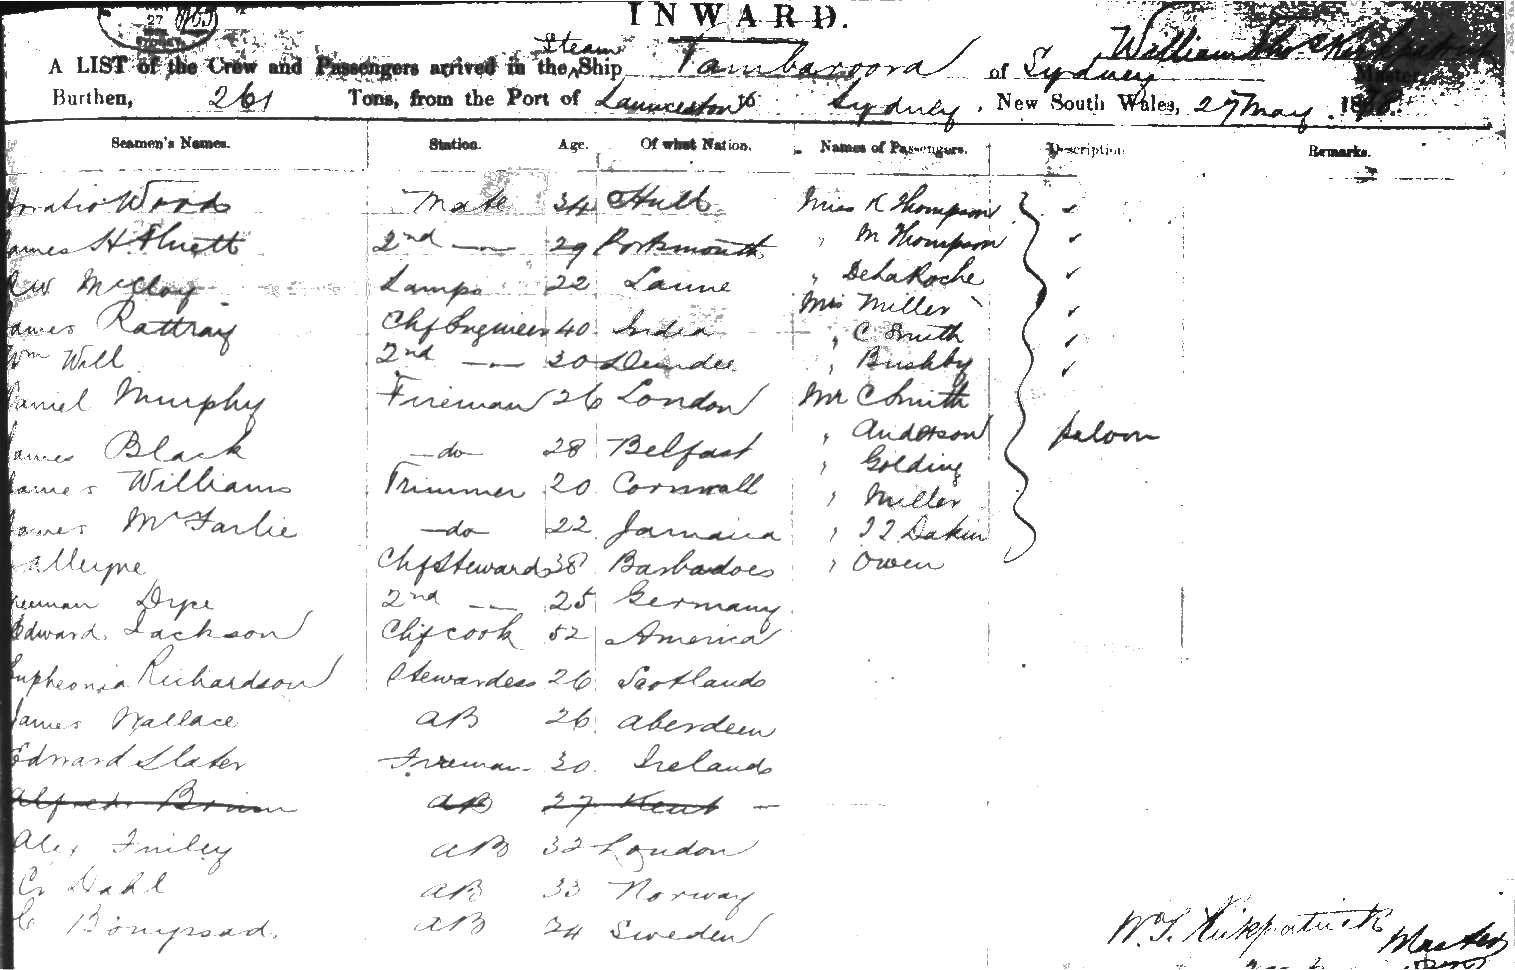 27
SYDNEY
INWARD.
Steam
A LIST of the Crew and Passengers arrived in the Ship Tambaroora of Sydney William Kirkpatrick Master
Burthen, 261 Tons, from the Port of Launceston to Sydney, New South Wales, 27 May 187
Seamen's Names. Station. Age. Of what Nation. Names of Passengers. Description Remarks.
Horatio Woods Mate 34 Hull Miss K Thompson
James H. 2nd — 29 Portsmouth " M Thompson
McCloy Lamps 22 " De La Roche
Mrs Miller
James Rattray Chf Engineer 40 India " C Smith
Wm Will 2nd — 30 Dundee " Bushby
Daniel Murphy Fireman 26 London Mr C Smith
James Black —do— 28 Belfast " Anderson saloon
" Golding
James Williams Trimmer 20 Cornwall " Miller
James McFarlie —do— 22 Jamaica " Dakin
Alleyne Chf Steward 38 Barbadoes " Owen
Dyce 2nd — 25 Germany
Edward Jackson Chf cook 52 America
Eupheonia Richardson Stewardess 26 Scotland
James Wallace AB 26 Aberdeen
Edward Slater Fireman 30 Ireland
Alfred AB 27 Kent —
Alex Finley AB 32 London
C Dahl AB 33 Norway
AB 24 Sweden
W. T. Kirkpatrick Master